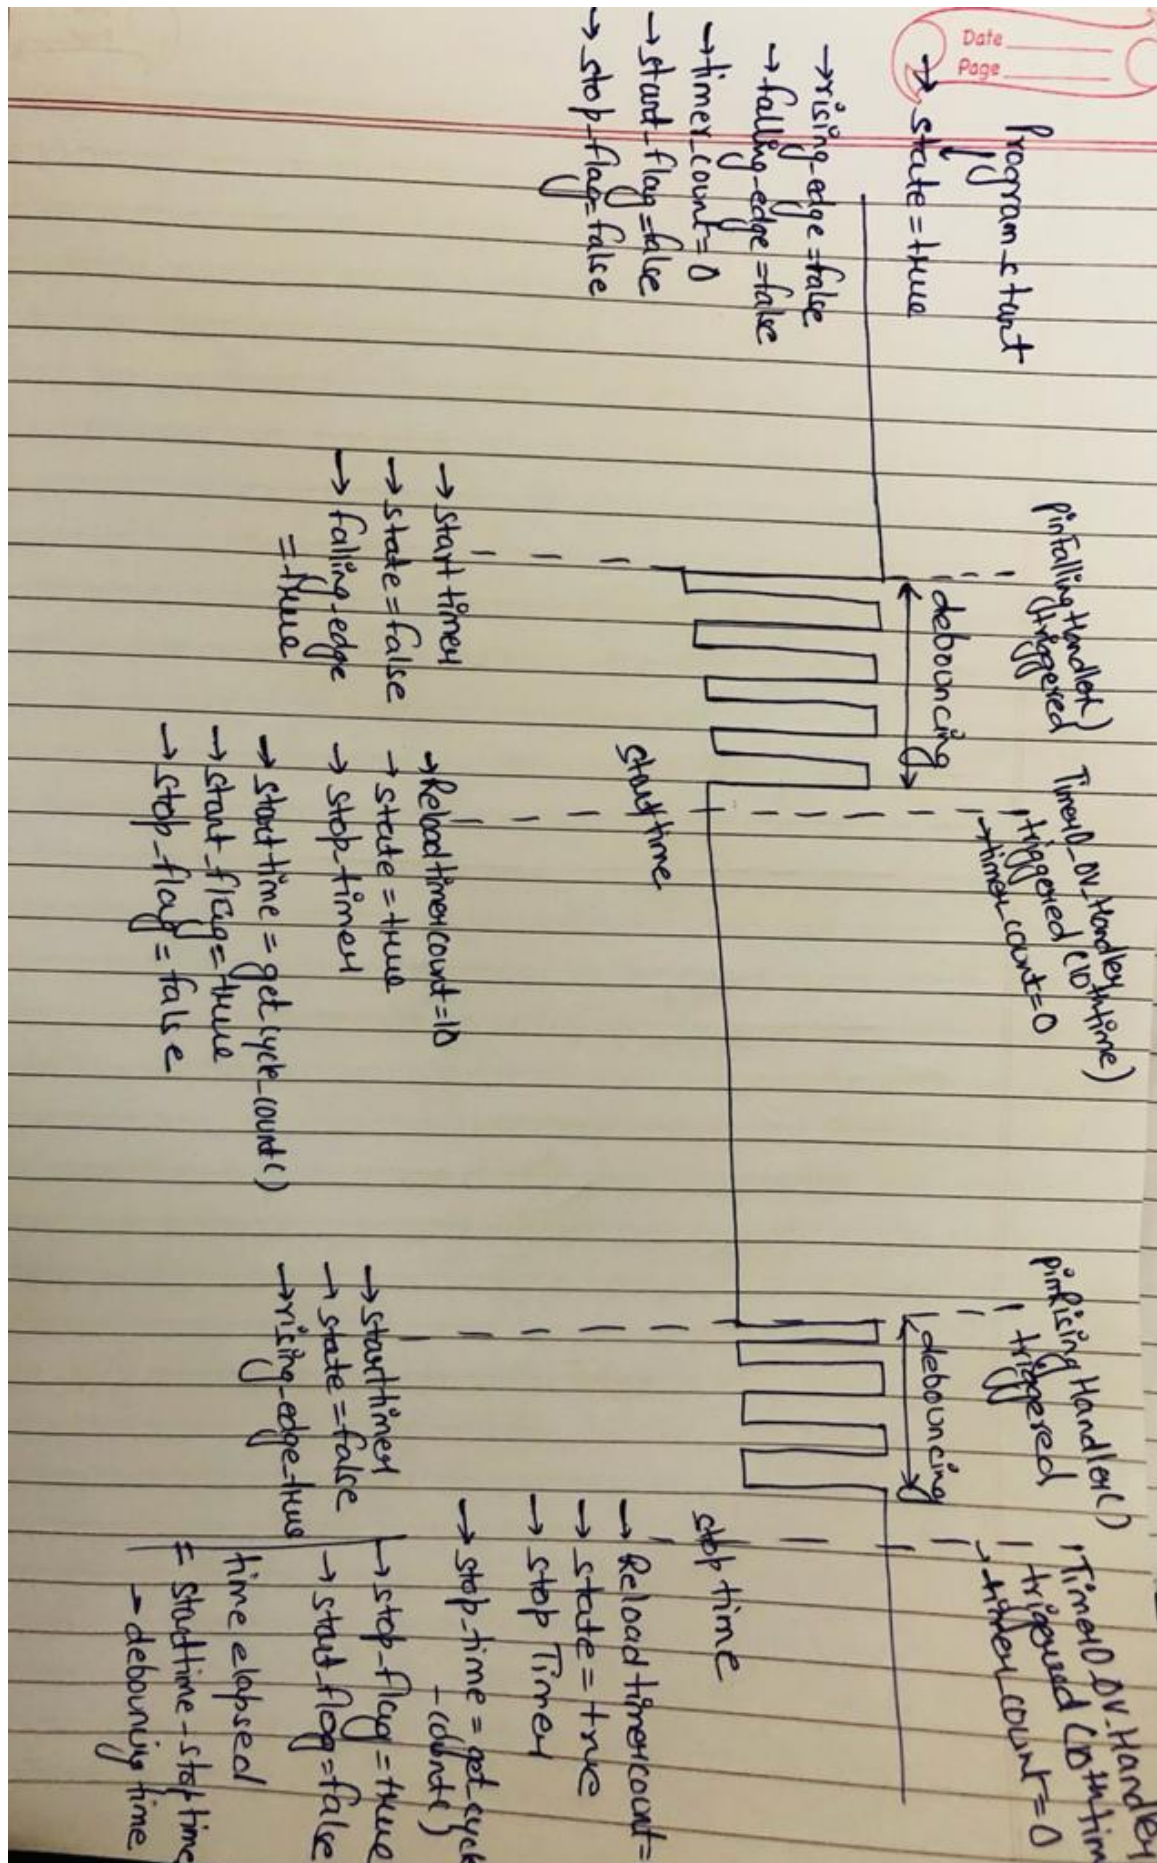 Date
Page
Program start
→ state = true
→ rising-edge = false
→ falling-edge = false
→ timer_count = 0
→ start_flag = false
→ stop_flag = false
pinFallingHandler()
triggered
debouncing
→ start timer
→ state = false
→ falling-edge
= true
Timer0_OV_Handler
triggered (10th time)
→ timer_count = 0
start time
→ Reload timer count = 10
→ state = true
→ stop-timer
→ start time = get cycle_count()
→ start_flag = true
→ stop_flag = false
pinRisingHandler()
triggered
debouncing
→ start timer
→ state = false
→ rising-edge-true
Timer0_OV_Handler
triggered (10th tim
→ timer_count = 0
stop time
→ Reload timer count =
→ state = true
→ stop Timer
→ stop_time = get_cycle
-count()
→ stop-flag = true
→ start_flag = false
time elapsed
= start time - stop time
- debouncing time